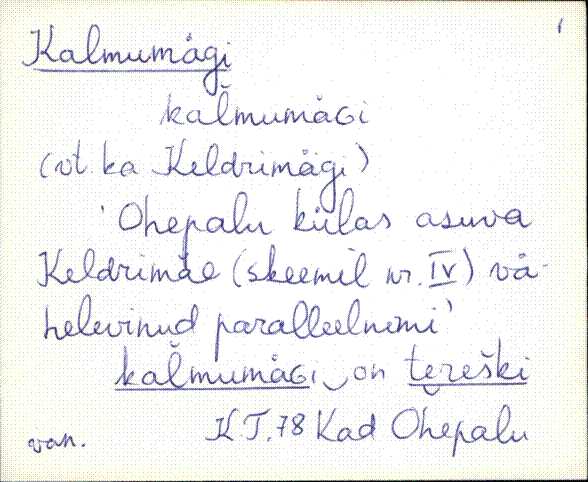 Kalmumägi
kal̆mumäGi
(vt. ka Keldrimägi)
'Ohepalu külas asuva
Keldrimäe (skeemil nr. IV) vä-
helevinud paralleelnimi'
kal̆mumäGi‿on tĕreški
van. K.T. 78 Kad Ohepalu